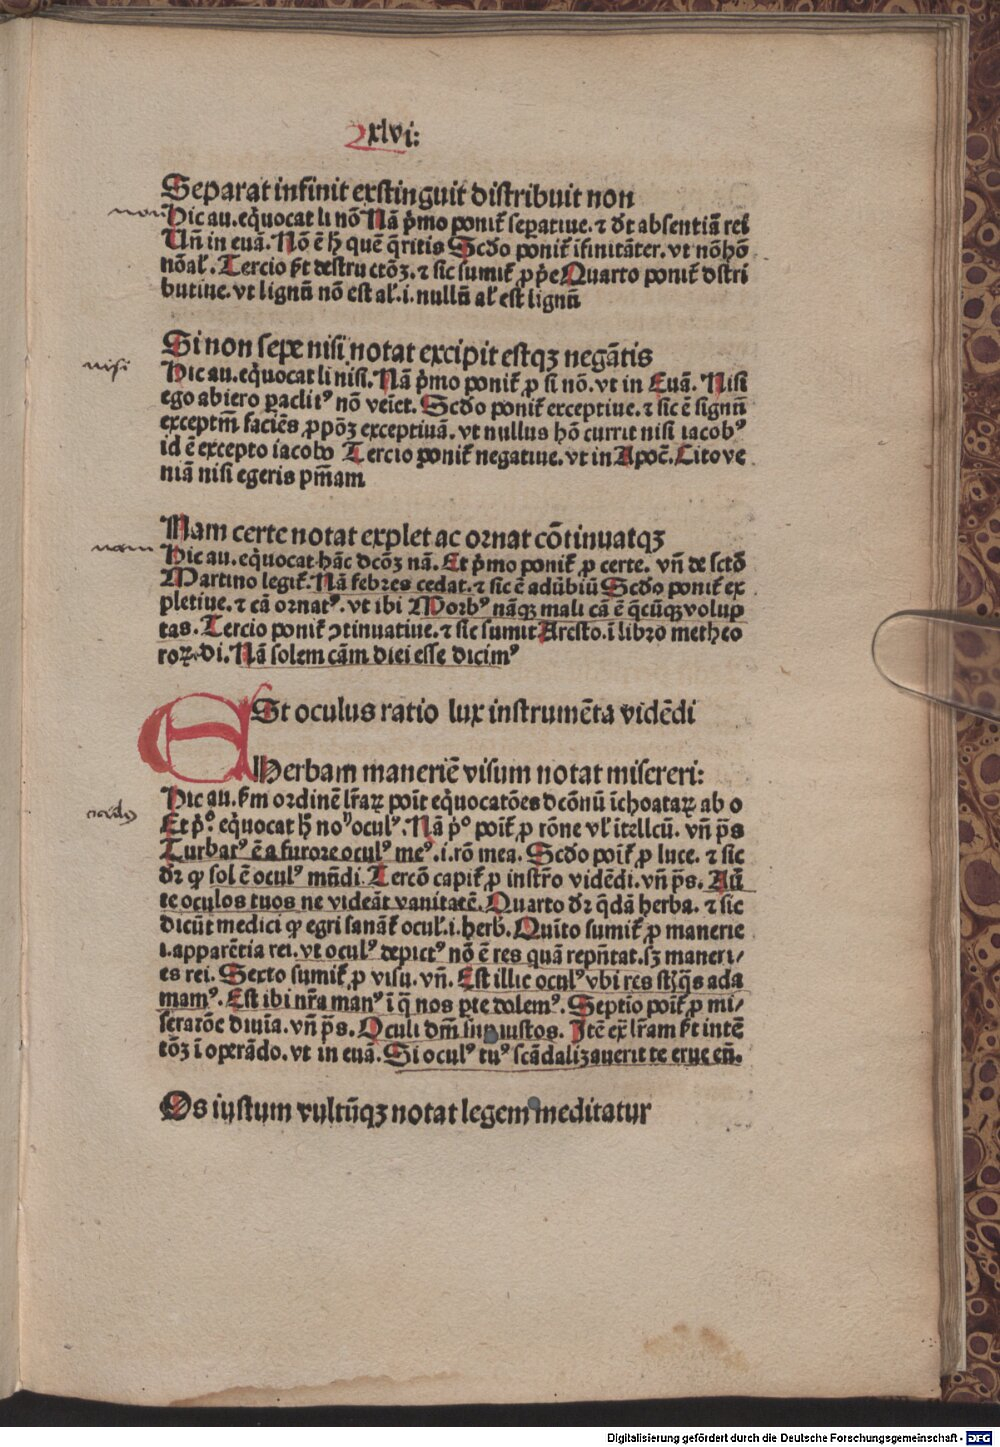 xlvi:
Separat infinit exstinguit distribuit non
non
Hic au. eq̄uocat li nō Nā p̄mo poniť ſepatiue. ⁊ dt̄ abſentiā rei
Un̄ in euā. Nō ē hˀ quē q̄ritis Scd̄o poniť īfinitāter. vt nōhō
nōal̓. Tercio fit deſtructōꝫ. ⁊ ſic ſumiť ꝓpe Quarto poniť dſtri
butiue. vt lignū nō eſt al̓. i. nullū al̓ eſt lignū
Si non ſepe niſi notat excipit eſtqꝫ negātis
niſi
Hic au. eq̄uocat li niſi. Nā p̄mo poniť ꝓ ſi nō. vt in Euā. Niſi
ego abiero paclitꝰ nō veīet. Scd̄o poniť exceptiue. ⁊ ſic ē ſignū
exceptm̄ faciēs ꝓpōꝫ exceptiuā. vt nullus hō currit niſi iacobꝰ
id ē excepto iacobo Tercio poniť negatiue. vt in Apoc̄. Cito ve
niā niſi egeris pm̄am
Nam certe notat explet ac ornat cōtinuatqꝫ
nam
Hic au. eq̄uocat hāc dcōꝫ nā. Et p̄mo poniť ꝓ certe. vn̄ de ſctō
Martino legiť. Nā febres cedat. ⁊ ſic ē adūbiū Scd̄o poniť ex
pletiue. ⁊ cā ornatꝰ. vt ibi Morbꝰ nāqꝫ mali cā ē q̄cūqꝫ volup
tas. Tercio poniť ꝯtinuatiue. ⁊ ſic ſumit Areſto. ī libro metheo
roꝝ. di. Nā ſolem cām diei eſſe dicimꝰ
St oculus ratio lux inſtrumēta vidēdi
Herbam maneriē viſum notat miſereri:
Hic au. ẜm ordinē lr̄aꝝ poīt eq̄uocatōes dcōnū īchoataꝝ ab o
Et pͦ. eq̄uocat hˀ noˀ oculꝰ. Nā pͦ poiť ꝓ rōne vl̓ ītellcū. vn̄ p̄s
Turbatꝰ ē a furore oculꝰ meꝰ. i. rō mea. Scd̄o poiť ꝓ luce. ⁊ ſic
dꝛ ꝙ ſol ē oculꝰ mūdi. Tercō capiť ꝓ inſtr̄o vidēdi. vn̄ p̄s. Auˀ
te oculos tuos ne videāt vanitatē. Quarto dꝛ q̄dā herba. ⁊ ſic
dicūt medici ꝙ egri ſanāť ocul̓. i. herb̄. Quīto ſumiť ꝓ manerie
i. apparētia rei. vt oculꝰ depictꝰ nō ē res quā repn̄tat. ſꝫ maneri/
es rei. Sexto ſumiť ꝓ viſu. vn̄. Eſt illic oculꝰ vbi res ſt q̄s ada
mamꝰ. Eſt ibi nr̄a manꝰ ī q̄ nos pte dolemꝰ. Septīo poiť ꝓ mi/
ſeratōe diuīa. vn̄ p̄s. Oculi dm̄ ſup iuſtos. Itē ex lr̄am fit intē
tōꝫ ī operādo. vt in euā. Si oculꝰ tuꝰ ſcādaliꝫauerit te erue eū.
Os iuſtum vultūqꝫ notat legem meditatur
Digitalisierung gefördert durch die Deutsche Forschungsgemeinschaft - DFG